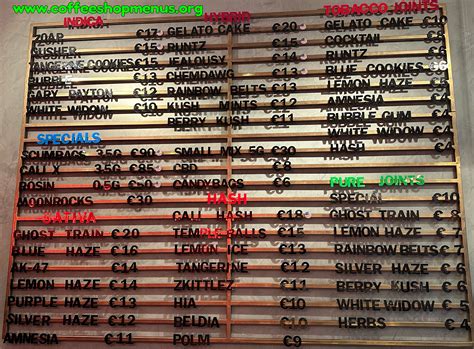 www.coffeeshopmenus.org
INDICA
ZOAP €17
GUSHER €15
TANGERINE COOKIES €15
BUBBLE €13
GARY PAYTON €12
WIDOW €10
SPECIALS
SCUMBAGS 3.5G €90
CALI X 3.5G €85
ROSIN 0.5G €50
MOONROCKS €30
SATIVA
GHOST TRAIN €20
BLUE HAZE €16
AK-47 €14
LEMON HAZE €14
PURPLE HAZE €13
SILVER HAZE €12
AMNESIA €11
HYBRID
GELATO CAKE €20
RUNTZ €15
JEALOUSY €15
CHEMDAWG €13
RAINBOW BELTS €13
KUSH MINTS €12
BERRY KUSH €11
SMALL MIX 5G €30
CBD €8
CANDYBAGS €6
HASH
CALI HASH €18
TEMPLE BALLS €15
LEMON ICE €13
TANGERINE €12
ZKITTLEZ €11
HIA €10
BELDIA €10
POLM €9
TOBACCO JOINTS
GELATO CAKE €10
COCKTAIL
RUNTZ
BLUE COOKIES €6
LEMON HAZE €5
AMNESIA
BUBBLE GUM €4
WHITE WIDOW €4
HASH €4
PURE JOINTS
SPECIAL €10
GHOST TRAIN €8
GELATO €7
RAINBOW BELTS €7
SILVER HAZE €6
BERRY KUSH €6
WHITE WIDOW €5
HERBS €4